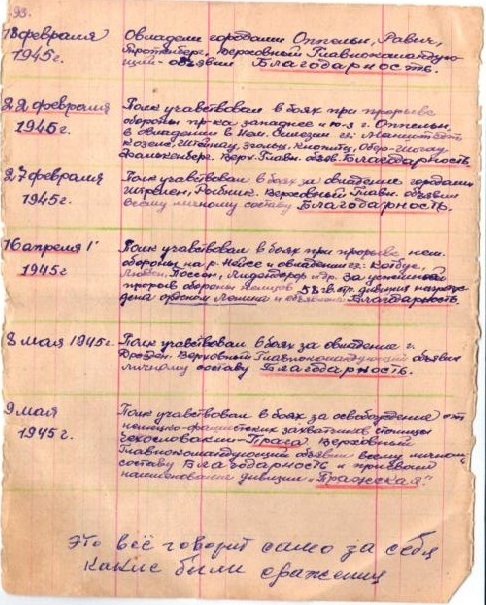 93.
18 февраля 1945г.
Овладели городами Оппельн, Равич,
Тротенберг. Верховный Главнокомандую-
щий - объявил Благодарность.
22 февраля 1945г.
Полк учавствовал в боях при прорыве
обороны пр-ка западнее и юз г. Оппельн,
и овладении в Нем. Силезии гг:
Козель, Штейнау, Зюльц, Обер-Глогау
Фалькенберг. Верх. Главн. объяв. Благодарность
27 февраля 1945г.
Полк учавствовал в боях за овладение городами
Штрелен, Рыбник. Верховный Главн. объявил
всему личному составу Благодарность.
16 апреля 1945г
Полк учавствовал в боях при прорыве нем.
обороны на р. Нейсе и овладении гг: Котбус,
Люббен, Цоссен, и др. За успешный
прорыв обороны немцов 58 гв. стр. дивизия награж-
дена орденом Ленина и объявлена Благодарность.
8 мая 1945г.
Полк учавствовал в боях за овладение г.
Дрезден. Верховный Главнокомандующий объявил
личному составу Благодарность.
9 мая 1945г.
Полк учавствовал в боях за освобождение от
немецко-фашистских захватчиков столицы
Чехословакии - Прага. Верховный
Главнокомандующий объявил всему личному
составу Благодарность и присвоил
наименование дивизии „Пражская".
Это всё говорит само за себя
какие были сражения